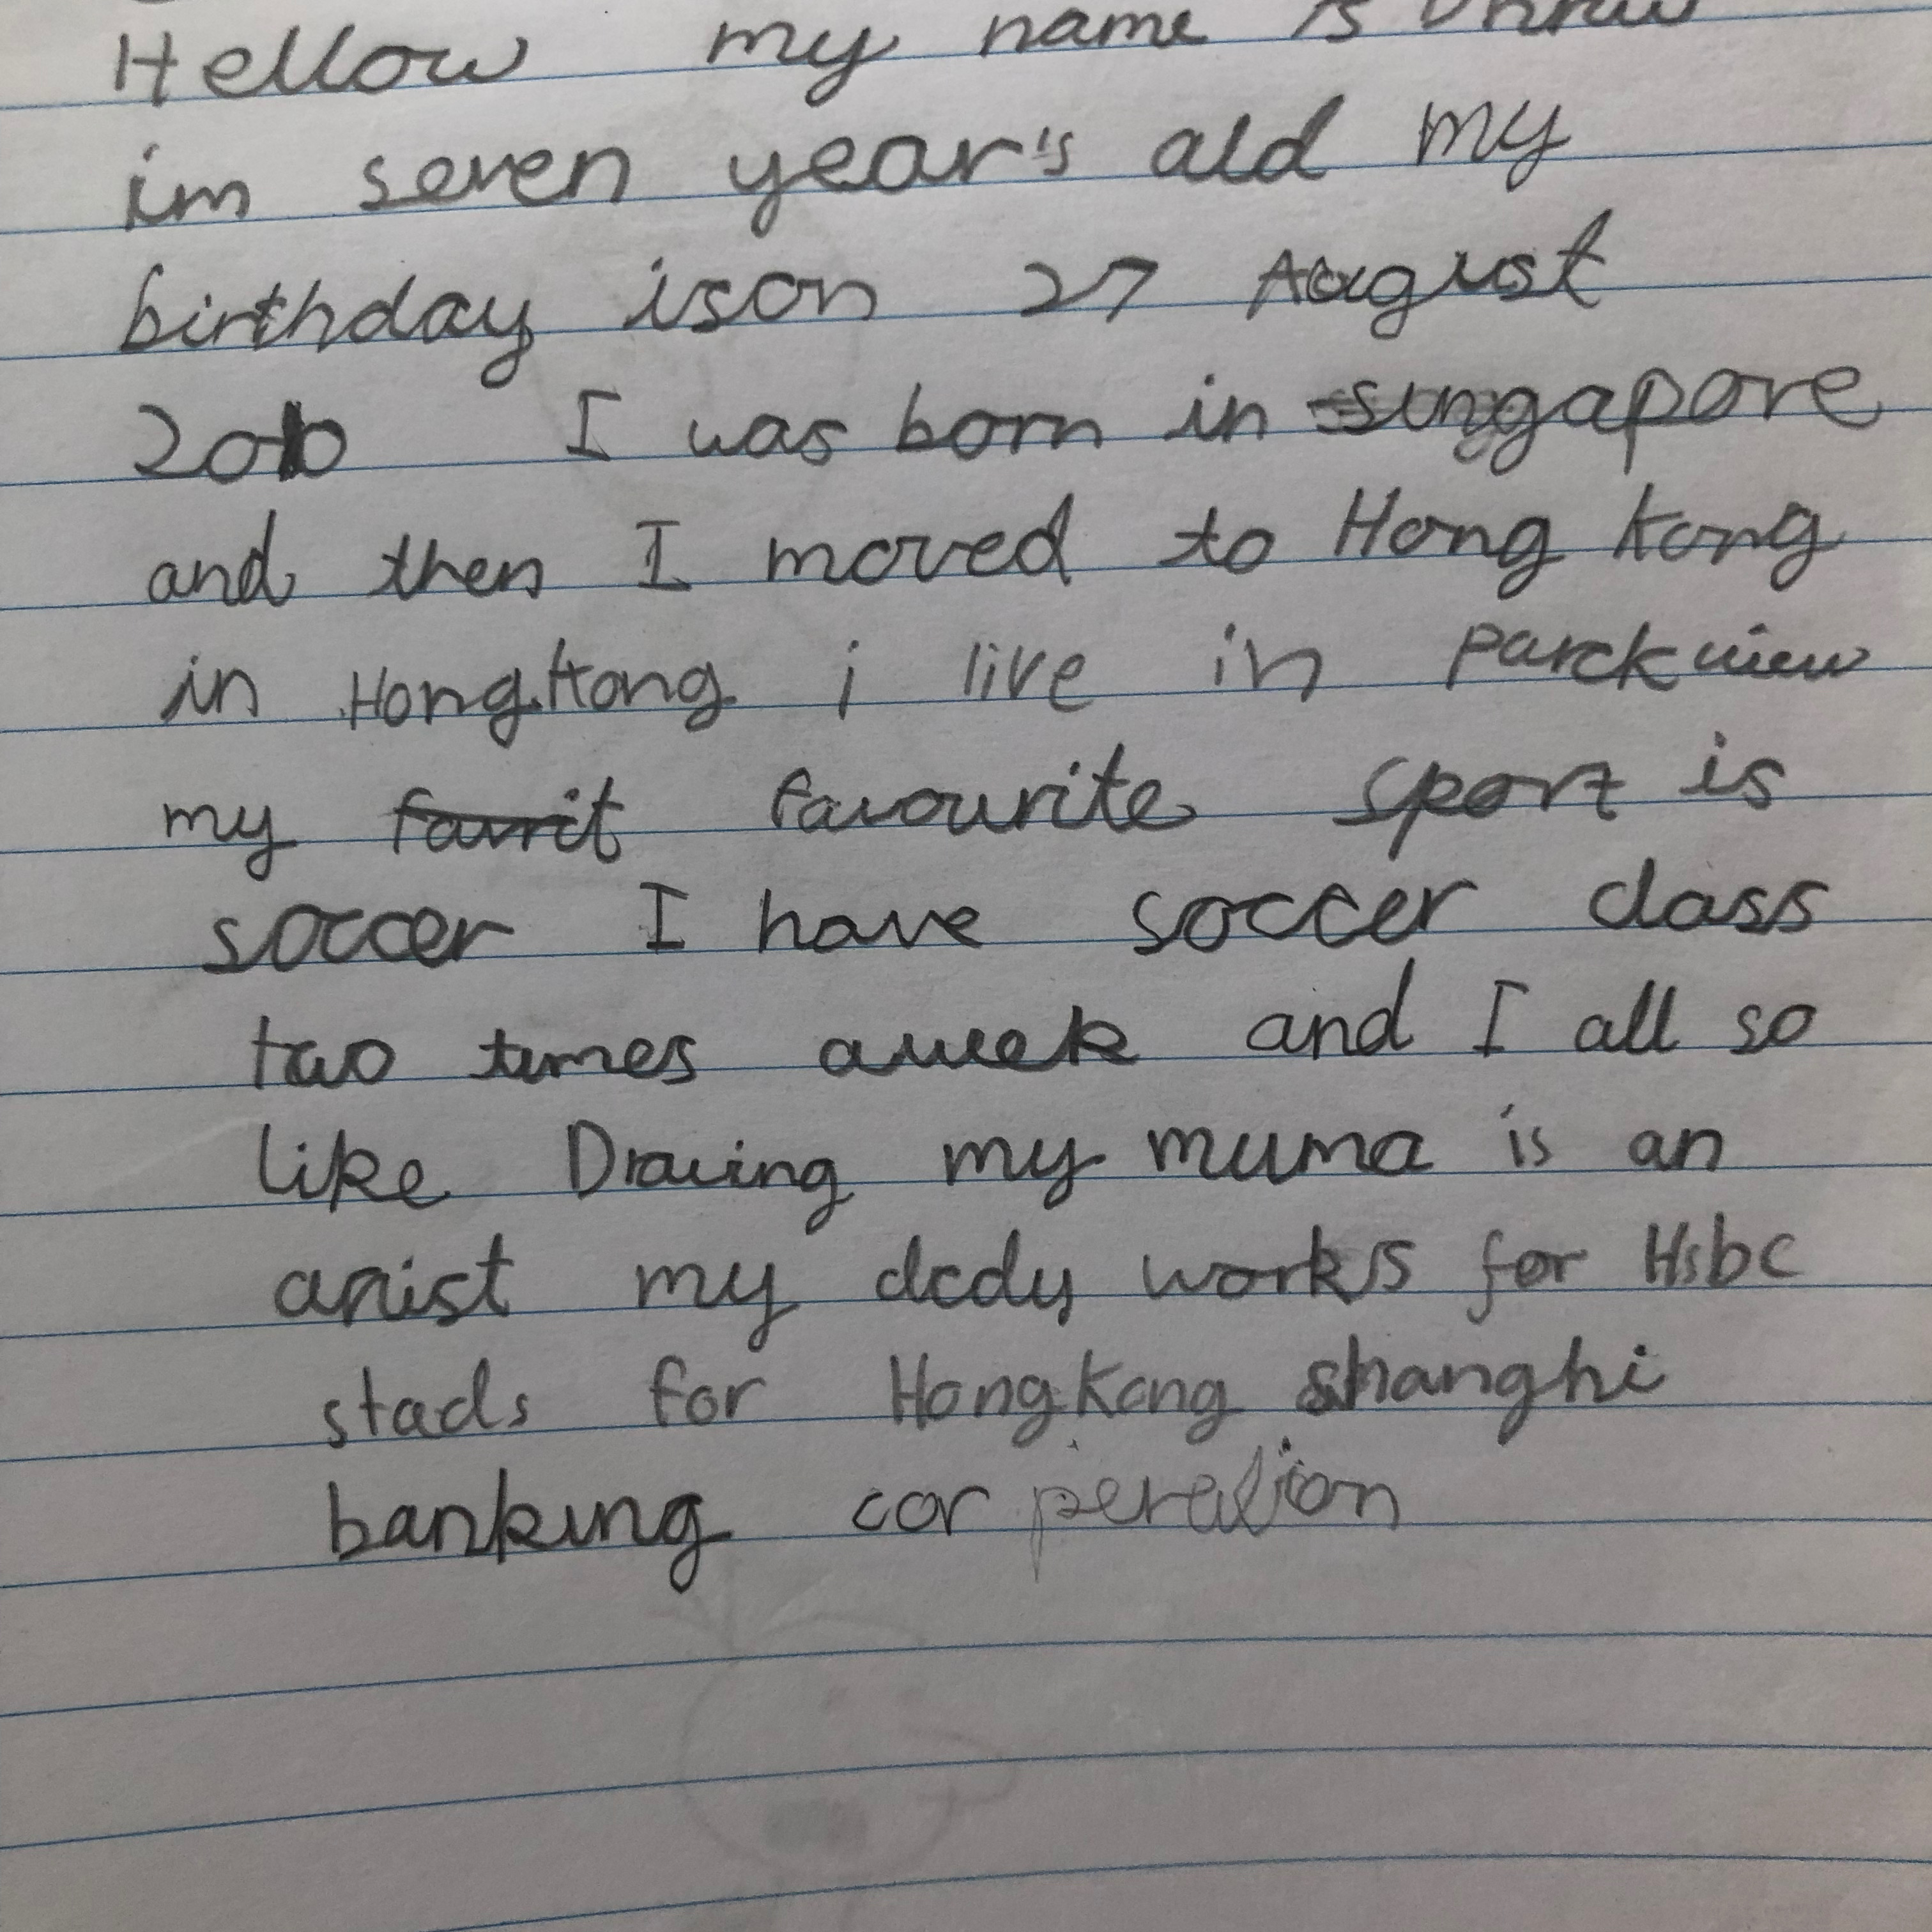 Hellow my name is
im seven year's ald my
birthday ison 27 August
2010 I was born in singapore
and then I moved to Hong kong
in Hong.Kong i live in parckview
my favrit favourite sport is
soccer I have soccer class
two times aweek and I all so
like Drawing my muma is an
artist my dady works for Hsbc
stads for Hong Kong shanghi
banking cor peration